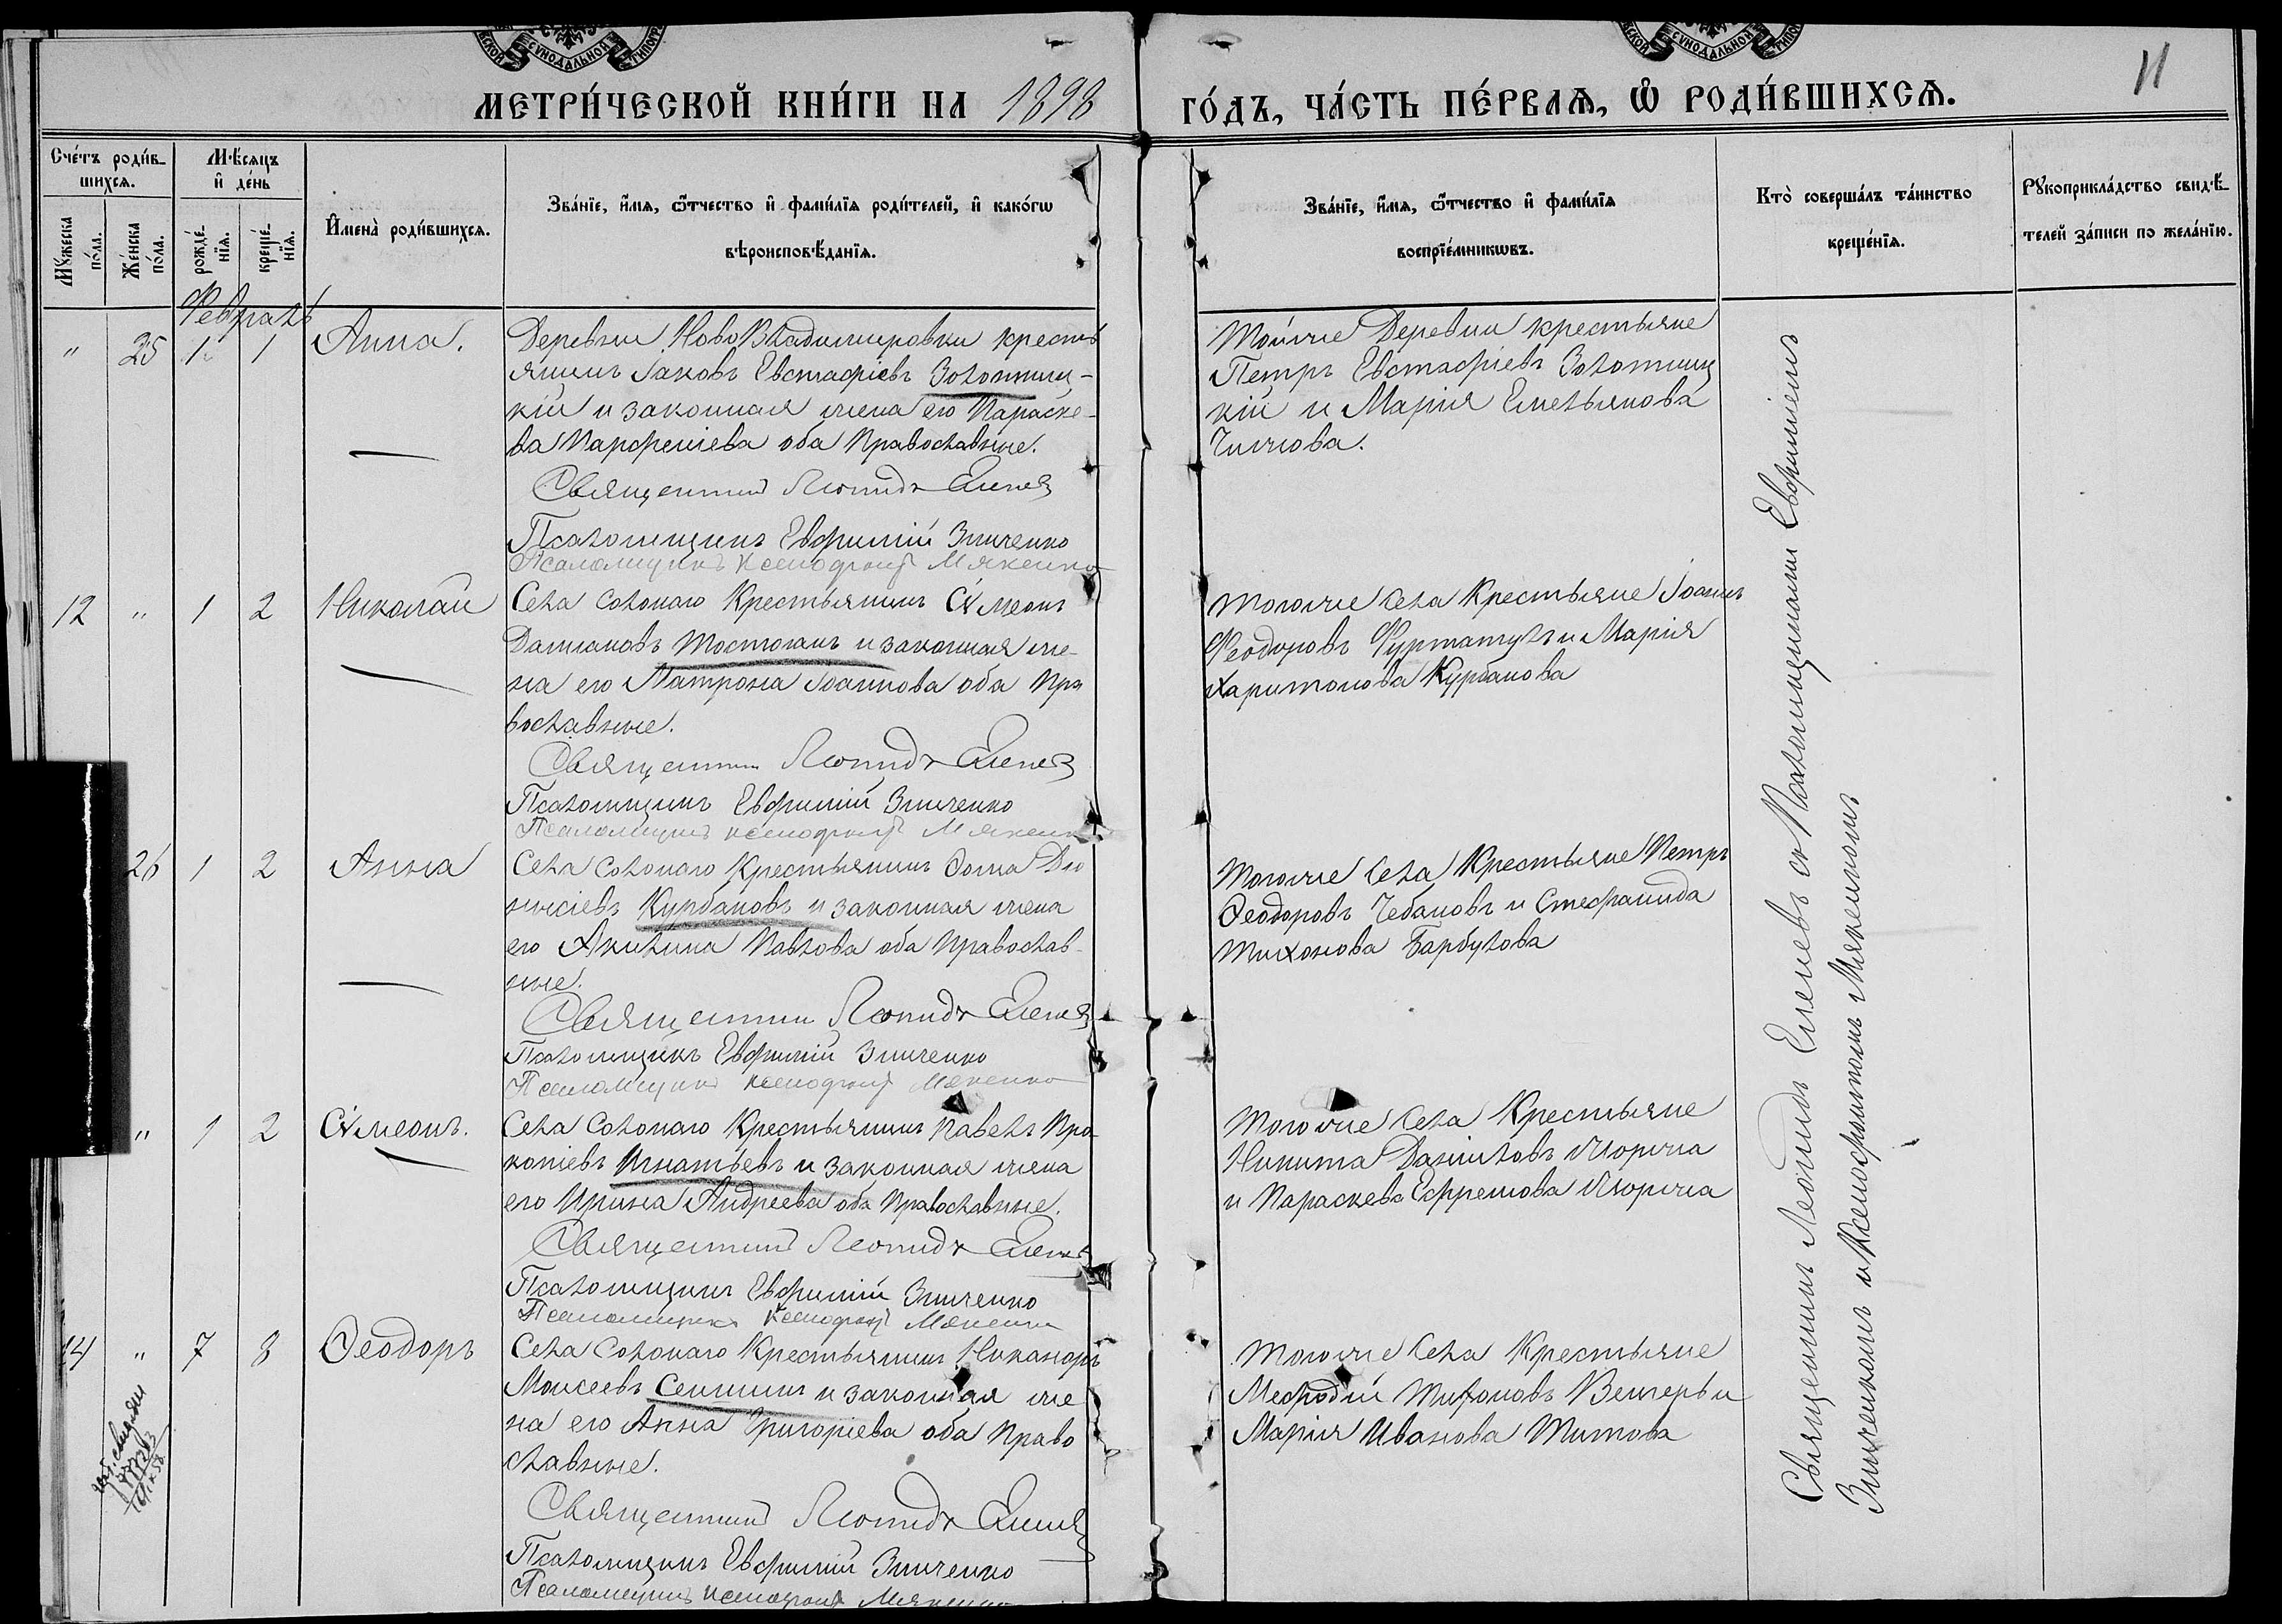 СѴНОДАЛЬНОЙ
СѴНОДАЛЬНОЙ
МЕТРИ́ЧЕСКОЙ КНИ́ГИ НА 1898
ГО́ДЪ, ЧА́СТЬ ПЕ́РВАѦ, Ѡ РОДИ́ВШИХСѦ.
11
Сче́тъ роди́в-
шихсѧ.
Мꙋ́жеска
по́ла.
Же́нска
по́ла.
Мѣ́сѧцъ
и҆ де́нь
рожде́-
нїѧ.
креще́-
нїѧ.
И҆мена̀ роди́вшихсѧ.
Зва́нїе, и҆́мѧ, ѻ҆́тчество и҆ фами́лїѧ роди́телей, и҆ како́гѡ
вѣроисповѣ́данїѧ.
Зва́нїе, и҆́мѧ, ѻ҆́тчество и҆ фами́лїѧ
воспрїе́мникѡвъ.
Кто̀ соверша́лъ та́инство
креще́нїѧ.
Рꙋкоприкла́дство свидѣ́-
телей за́писи по жела́нїю.
Февраль
" 25 1 1 Анна.
Деревни НовоВладимировки кресть
янинъ Іаковъ Евстафіевъ Золотниц-
кій и законная жена его Параске-
ва Парфеніева оба Православные.
Священникъ Леонидъ Еленевъ
Псаломщикъ Евфимій Зинченко
Псаломщикъ Ксенофонтъ Мякенко
Тойже Деревни крестьяне
Петръ Евстафіевъ Золотниц
кій и Марія Емельянова
Чижова.
12 " 1 2 Николай
Села Солонаго Крестьянинъ Сѵмеонъ
Даміановъ Тостоганъ и законная же-
на его Матрона Іоаннова оба Пра
вославные.
Священникъ Леонидъ Еленевъ
Псаломщикъ Евфимій Зинченко
Псаломщикъ Ксенофонтъ Мякенко
Тогоже Села Крестьяне Іоаннъ
Феодоровъ Фуртатулъ и Марія
Харитонова Курбанова
26 1 2 Анна
Села Солонаго Крестьянинъ Ѳома Діо
нисіевъ Курбановъ и законная жена
его Акилина Павлова оба Православ-
ные.
Священникъ Леонидъ Еленевъ
Псаломщикъ Евфимій Зинченко
Псаломщикъ Ксенофонтъ Мякенко
Тогоже Села Крестьяне Петръ
Ѳеодоровъ Чебановъ и Стефанида
Тихонова Барбулова
" 1 2 Сѵмеонъ.
Села Солонаго Крестьянинъ Павелъ Про
копіевъ Игнатьевъ и законная жена
его Ирина Андреева оба Православные.
Священникъ Леонидъ Еленевъ
Псаломщикъ Евфимій Зинченко
Псаломщикъ Ксенофонтъ Мякенко
Тогоже Села Крестьяне
Никита Даніиловъ
и Параскева Ефремова
14 " 7 8 Ѳеодоръ
Села Солонаго Крестьянинъ Никаноръ
Моисеевъ Сенинъ и законная же
на его Анна Григоріева оба Право
славные.
Священникъ Леонидъ Еленевъ
Псаломщикъ Евфимій Зинченко
Псаломщикъ Ксенофонтъ Мякенко
Тогоже Села Крестьяне
Мефодій Тихоновъ Венгеръ и
Марія Иванова Титова
Священникъ Леонидъ Еленевъ со Псаломщиками Евфиміемъ
Зинченкомъ и Ксенофонтомъ Мякенкомъ